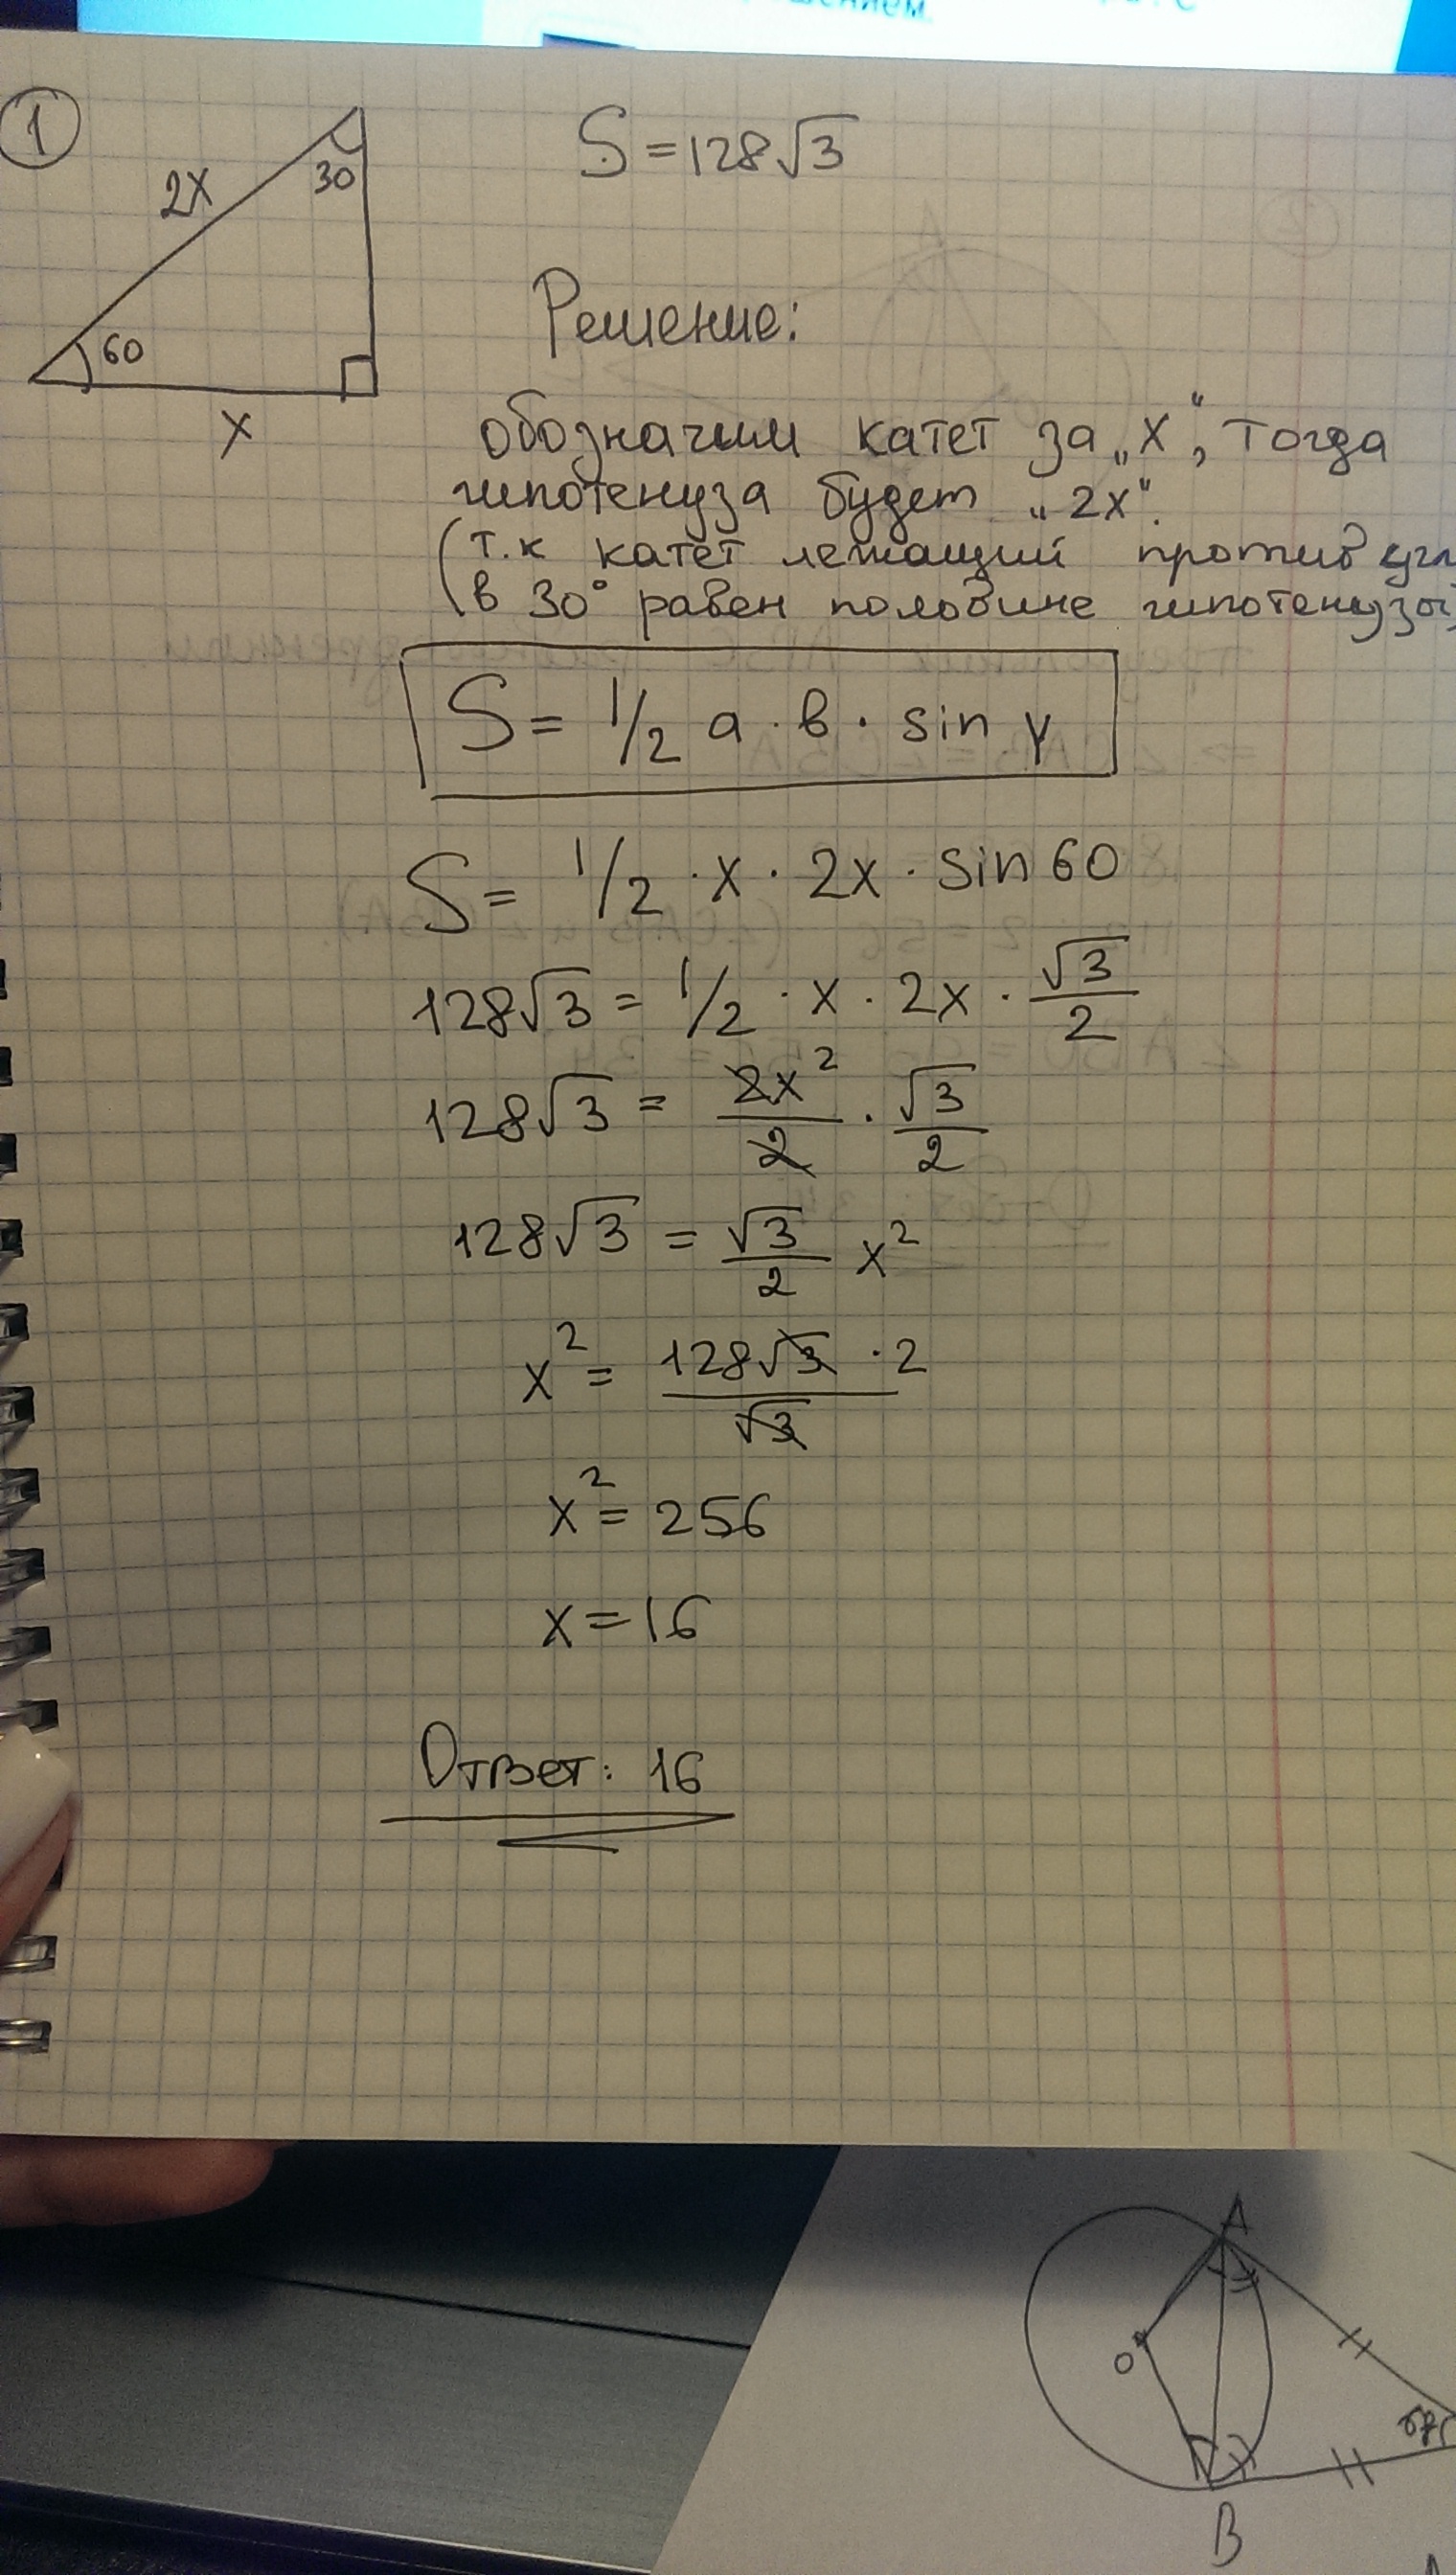 1
2x
30
60
x
S = 128√3
Решение:
обозначим катет за „x“, тогда
гипотенуза будет „2x“.
(т.к катет лежащий против
в 30° равен половине гипотенузы)
S = 1/2 a · в · sin γ
S = 1/2 · x · 2x · sin 60
128√3 = 1/2 · x · 2x · √3/2
128√3 = 2x²/2 · √3/2
128√3 = √3/2 x²
x² = 128√3 · 2/√3
x² = 256
x = 16
Ответ: 16
A
O
B